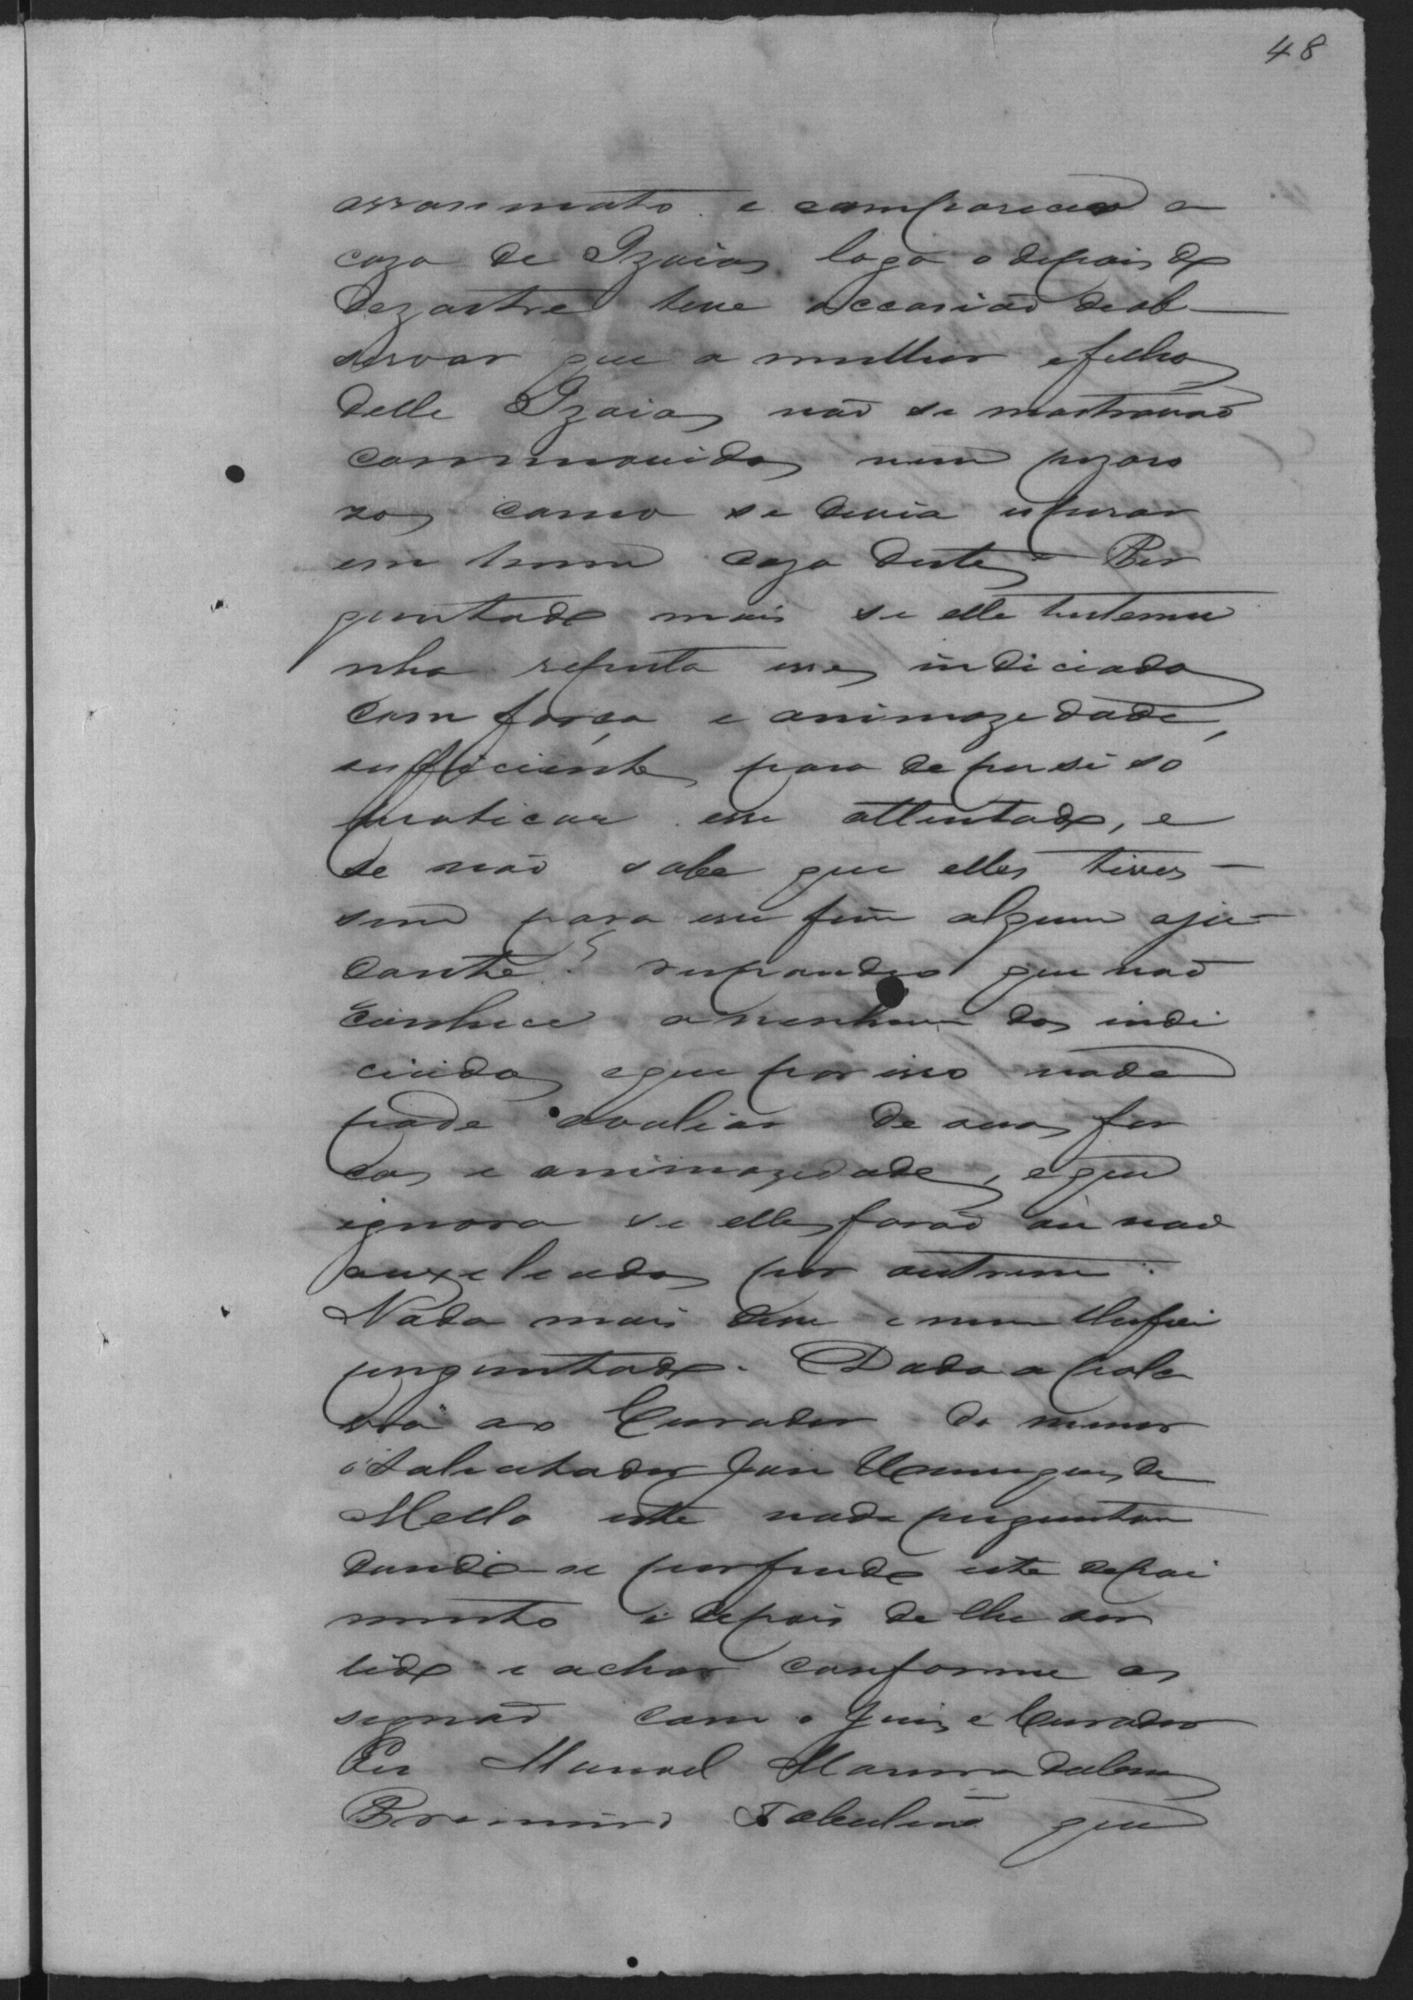 48
assasinato e compareceo a
caza de Izaias logo o depois do
dezastre teve occasião de ob-
servar que a mulher e filhos
delle Izaias não se mostravão
commovidos nem pezaro
zos como se devia esperar
em huma caza destes. Per
guntado mais se elle testemu
nha reputa esses indiciados
com força e animozidade,
sufficiente para de per si só
praticar esse attentado, e
se não sabe que elles tives-
sem para esse fim algum aju-
dante? respondeo que não
conhece a nenhum dos indi
ciados e que por isso nada
pode avaliar de suas for
ças e animozidade, e que
ignora se elles forão ou não
auxeliados por outrem.
Nada mais disse e nem lhe foi
perguntado. Dada a pala
vra ao Curador do menor
o Solicitador José Domingues de
Mello este nada perguntou
dando-se por findo este depoi
mento e depois de lhe ser
lido e achar conforme as
signão com o Juiz e Curador
Eu Manoel
Tabelião que